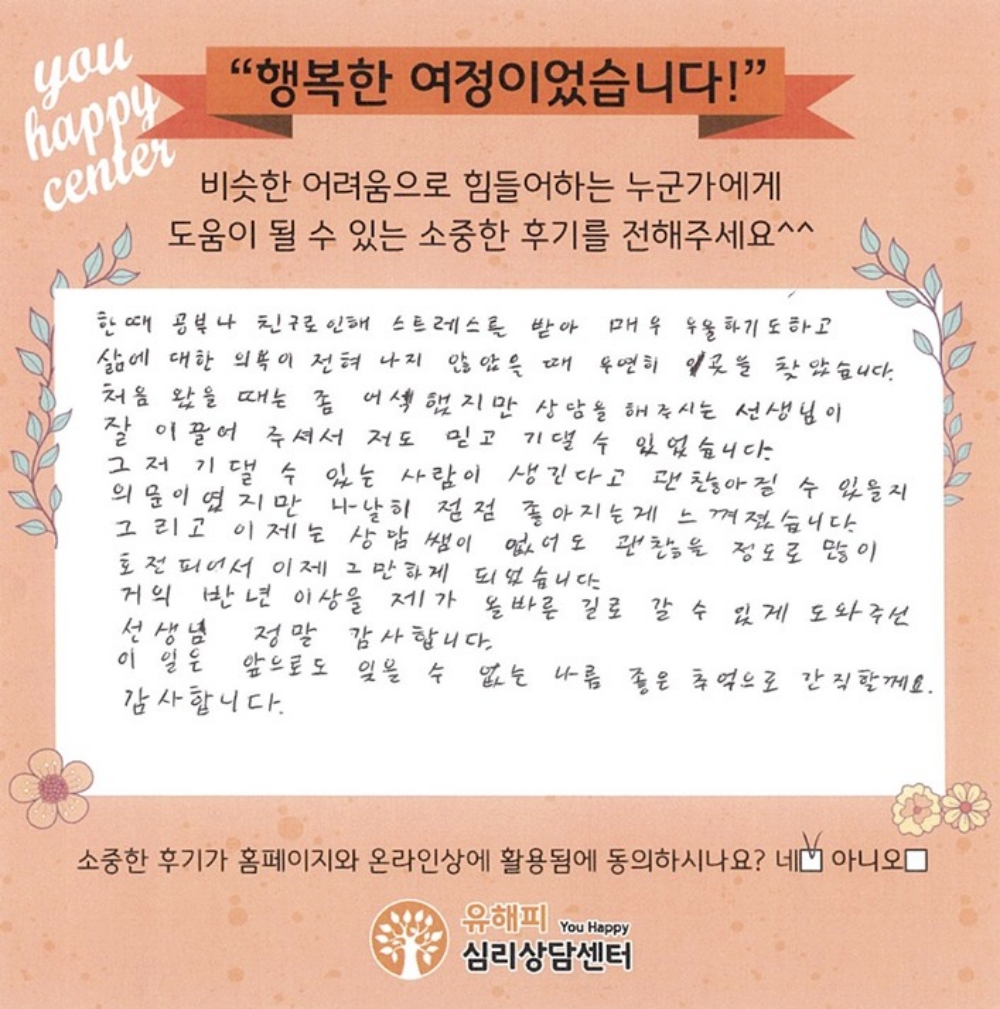 you
happy
center
“행복한 여정이었습니다!”
비슷한 어려움으로 힘들어하는 누군가에게
도움이 될 수 있는 소중한 후기를 전해주세요^^
한때 공부나 친구로인해 스트레스를 받아 매우 우울하기도하고
삶에 대한 의복이 전혀 나지 않았을 때 우연히 이곳을 찾았습니다.
처음 왔을 때는 좀 어색했지만 상담을 해주시는 선생님이
잘 이끌어 주셔서 저도 믿고 기댈 수 있었습니다.
그저 기댈 수 있는 사람이 생긴다고 괜찮아질 수 있을지
의문이였지만 나날히 점점 좋아지는게 느껴졌습니다.
그리고 이제는 상담쌤이 없어도 괜찮을 정도로 많이
호전되어서 이제 그만하게 되었습니다.
거의 반년 이상을 제가 올바른 길로 갈 수 있게 도와주신
선생님 정말 감사합니다.
이 일은 앞으로도 잊을 수 없는 나름 좋은 추억으로 간직할께요.
감사합니다.
소중한 후기가 홈페이지와 온라인상에 활용됨에 동의하시나요? 네☑ 아니오☐
유해피 You Happy
심리상담센터